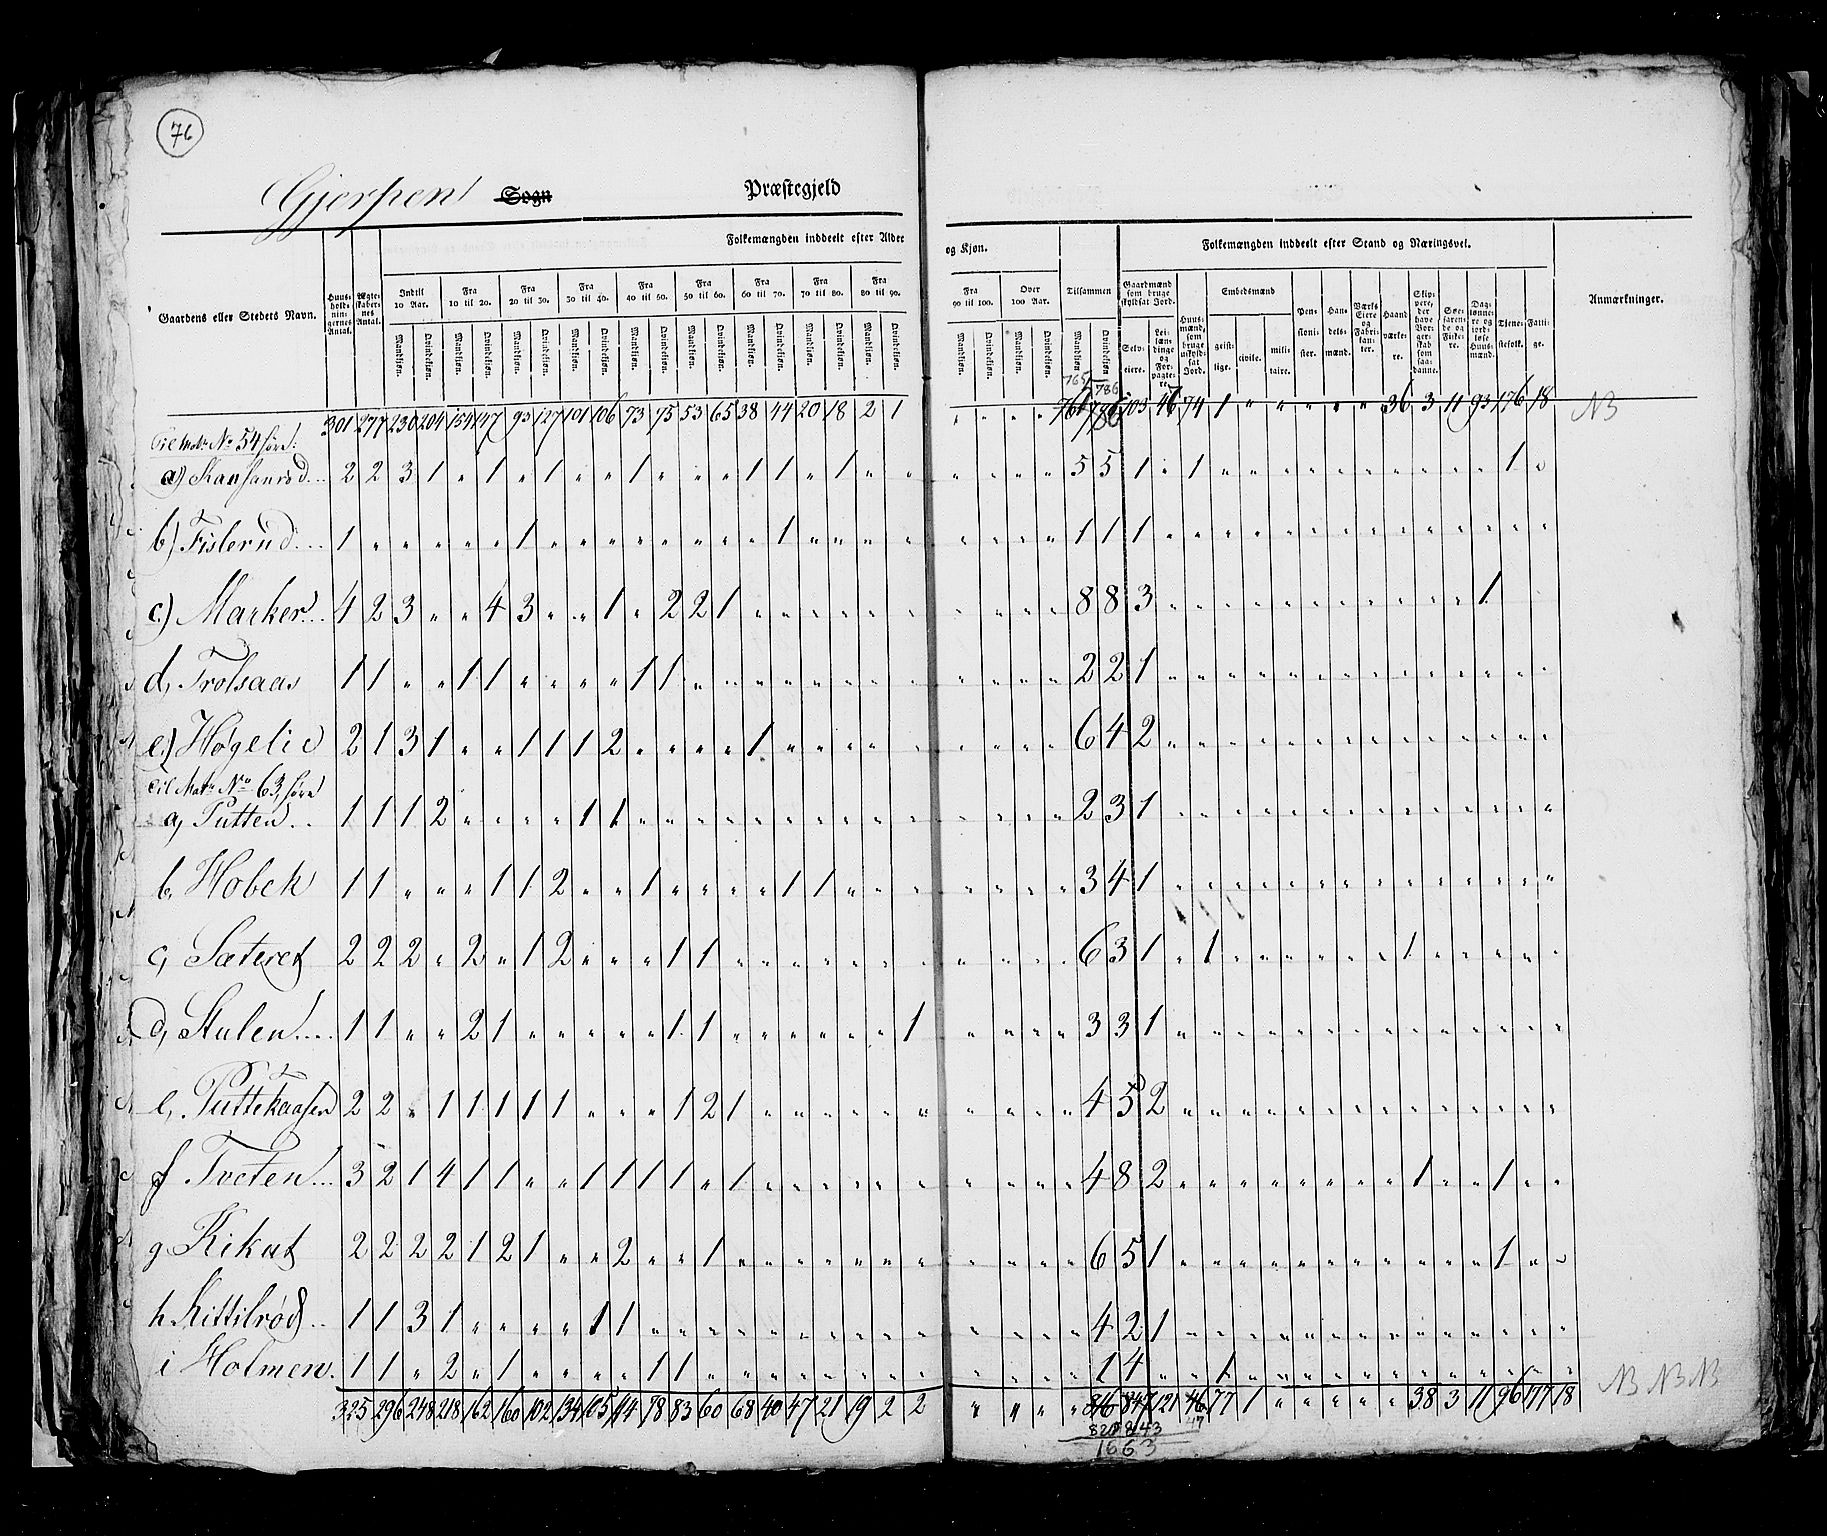 76
Gjerpen Sogn Præstegjeld
Folkemængden inddeelt efter Alder og Kjøn.
Folkemængden inddeelt efter Stand og Næringsvei.
Gaardens eller Stedets Navn.
Huusholdningernes Antal.
Ægteskabernes Antal.
Indtil 10 Aar.
Fra 10 til 20.
Fra 20 til 30.
Fra 30 til 40.
Fra 40 til 50.
Fra 50 til 60.
Fra 60 til 70.
Fra 70 til 80.
Fra 80 til 90.
Fra 90 til 100.
Over 100 Aar.
Tilsammen
Mandkjøn. Qvindekjøn.
Gaardmænd som bruge skyldsat Jord.
Selveiere.
Leilændinge og Forpagtere.
Huusmænd, som bruge uskyldsat Jord.
Embedsmænd
geistlige. civile. militaire.
Pensionister.
Handelsmænd.
Værks Eiere og Fabrikanter.
Haandværkere.
Skippere, der have Borgerskab som saadanne.
Søefarende og Fiskere.
Daglønnere og jordløse Huusmænd.
Tjenestefolk.
Fattige.
Anmærkninger.
765 786
301 277 230 204 154 147 93 127 101 106 73 75 53 65 38 44 20 18 2 1 " " " " 764 786 103 46 74 1 " " " " " 36 3 11 93 176 18 NB
Til Matr. No 54 føres:
a) Skansanrød... 2 2 3 1 " 1 " 1 " " 1 " " " 1 1 " 1 " " " " " " 5 5 1 " 1 " " " " " " " " " " 1 "
b) Fislerud.... 1 " " " " " 1 " " " " " " " " 1 " " " " " " " " 1 1 1 " " " " " " " " " " " " " "
c) Marker... 4 2 3 " " 4 3 " " 1 " 2 2 1 " " " " " " " " " " 8 8 3 " " " " " " " " " " " 1
d, Trolsaas 1 1 " " 1 1 " " " " 1 1 " " " " " " " " " " " " 2 2 1 " " " " " " " " " " " " " "
e) Høgelie 2 1 3 1 " " 1 1 1 2 " " " " 1 " " " " " " " " " 6 4 2 " " " " " " " " " " " " " "
Til Matr No 63, føres
a, Putten.. 1 1 1 2 " " " " 1 1 " " " " " " " " " " " " " " 2 3 1 " " " " " " " " " " " " " "
b, Hobek 1 1 " " " 1 1 2 " " 1 " " " " 1 1 " " " " " " " 3 4 1 " " " " " " " " " " " " " "
c, Sæteret 2 2 2 " 2 " 1 2 " " " 1 1 " " " " " " " " " " " 6 3 1 " 1 " " " " " " 1 " " " " "
d, Stulen.... 1 1 " " 2 1 " " " " " 1 1 " " " " " " 1 " " " " 3 3 1 " " " " " " " " " " " " " "
e, Puttekaasen 2 2 " 1 1 1 1 1 " " " 1 2 1 " " " " " " " " " " 4 5 2 " " " " " " " " " " " " " "
f Tveten... 3 2 1 4 1 1 " " 1 1 1 1 " 1 " " " " " " " " " " 4 8 2 " " " " " " " " 1 " " 1 " "
g Kikut 2 2 2 2 1 2 1 " " 2 " " 1 " " " " " " " " " " " 6 5 1 " " " " " " " " " " " 1 " "
h Kittilrød.. 1 1 3 1 " " " " 1 1 " " " " " " " " " " " " " " 4 2 1 " " " " " " " " " " " " " "
i Holmen. 1 1 " 2 " 1 " " " " 1 1 " " " " " " " " " " " " 1 4 " " 1 " " " " " " " " " " " "
325 296 248 218 162 160 102 134 105 114 78 83 60 68 40 47 21 19 2 2 " " " " 816 847 121 46 77 1 " " " " " 38 3 11 96 177 18 NB NB NB
820 843 47
1663